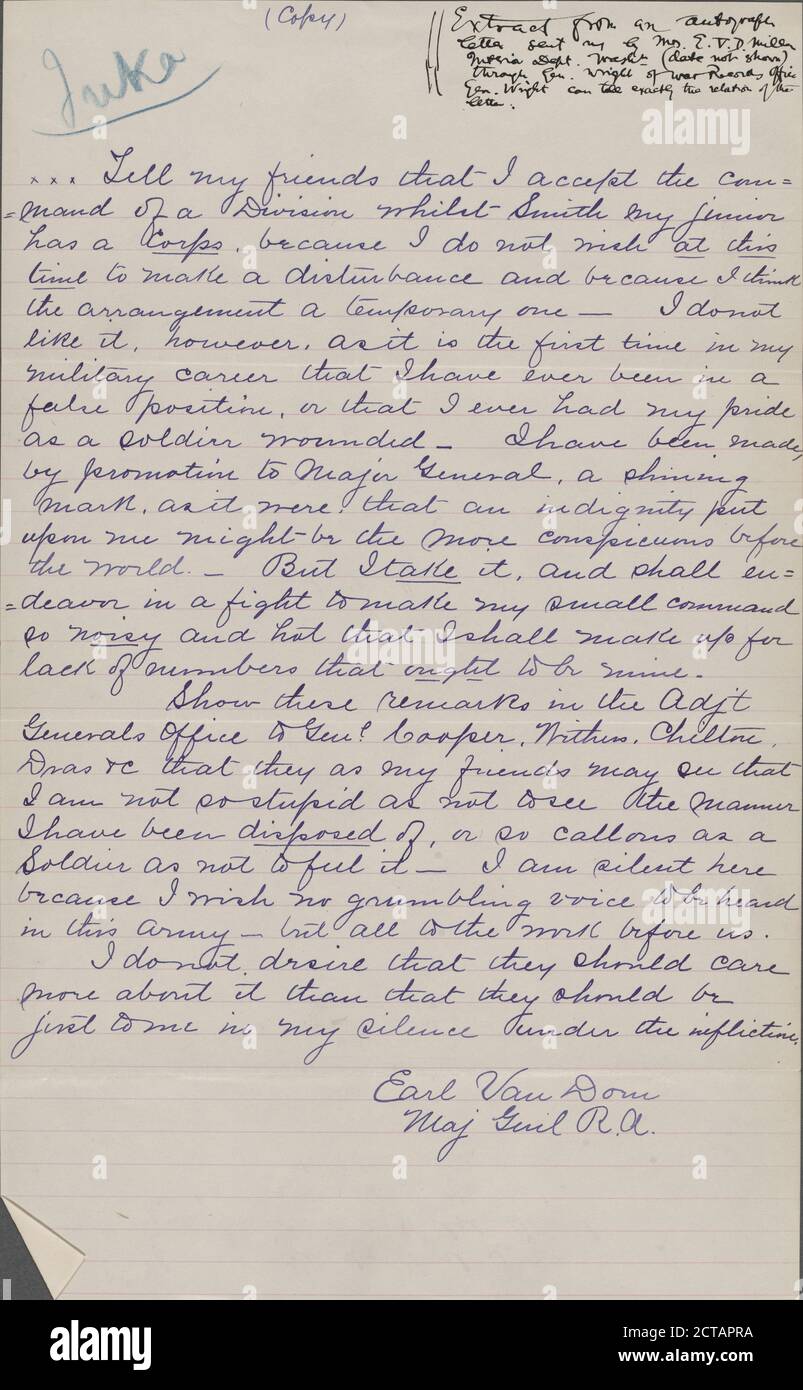 (Copy)
Iuka
Extract from an autograph
letter sent my by Mrs. E. V. D. Miller
Interior Dept. Washn (date not shown)
through Gen. Wright of War Records Office
Gen. Wright can tell exactly the relation of the
letter.
x x x Tell my friends that I accept the com=
=mand of a Division whilst Smith my junior
has a Corps, because I do not wish at this
time to make a disturbance and because I think
the arrangement a temporary one — I do not
like it, however, as it is the first time in my
military career that I have ever been in a
false position, or that I ever had my pride
as a soldier wounded — I have been made,
by promotion to Major General, a shining
mark, as it were, that an indignity put
upon me might be the more conspicuous before
the world. — But I take it, and shall en=
=deavor in a fight to make my small command
so noisy and hot that I shall make up for
lack of numbers that ought to be mine.
Show these remarks in the Adjt
Generals Office to Genl. Cooper, Withers, Chilton,
Deas &c that they as my friends may see that
I am not so stupid as not to see the manner
I have been disposed of, or so callous as a
Soldier as not to feel it — I am silent here
because I wish no grumbling voice to be heard
in this army — but all to the work before us.
I do not desire that they should care
more about it than that they should be
just to me in my silence under the infliction.
Earl Van Dorn
Maj Genl P. A.
alamy
Image ID: 2CTAPRA
www.alamy.com